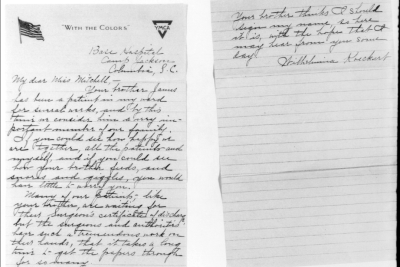 "WITH THE COLORS"
YMCA
Base Hospital
Camp Jackson
Columbia, S.C.
My dear Miss Mitchell:—
Your brother James
has been a patient in my ward
for several weeks, and by this
time we consider him a very im-
portant member of our family.
If you could see how happy we
are together, all the patients and
myself, and if you could see
how your brother feeds, and
snores and giggles, you would
have little to worry you.
Many of our patients, like
your brother, are waiting for
their Surgeon's certificates of discharge
but the surgeons and authorities
have such a tremendous work on
their hands, that it takes a long
time to get the papers through
for so many.
Your brother thinks I should
sign my name, so here
it is, with the hope that I
may hear from you some
day!
Wilhelmina